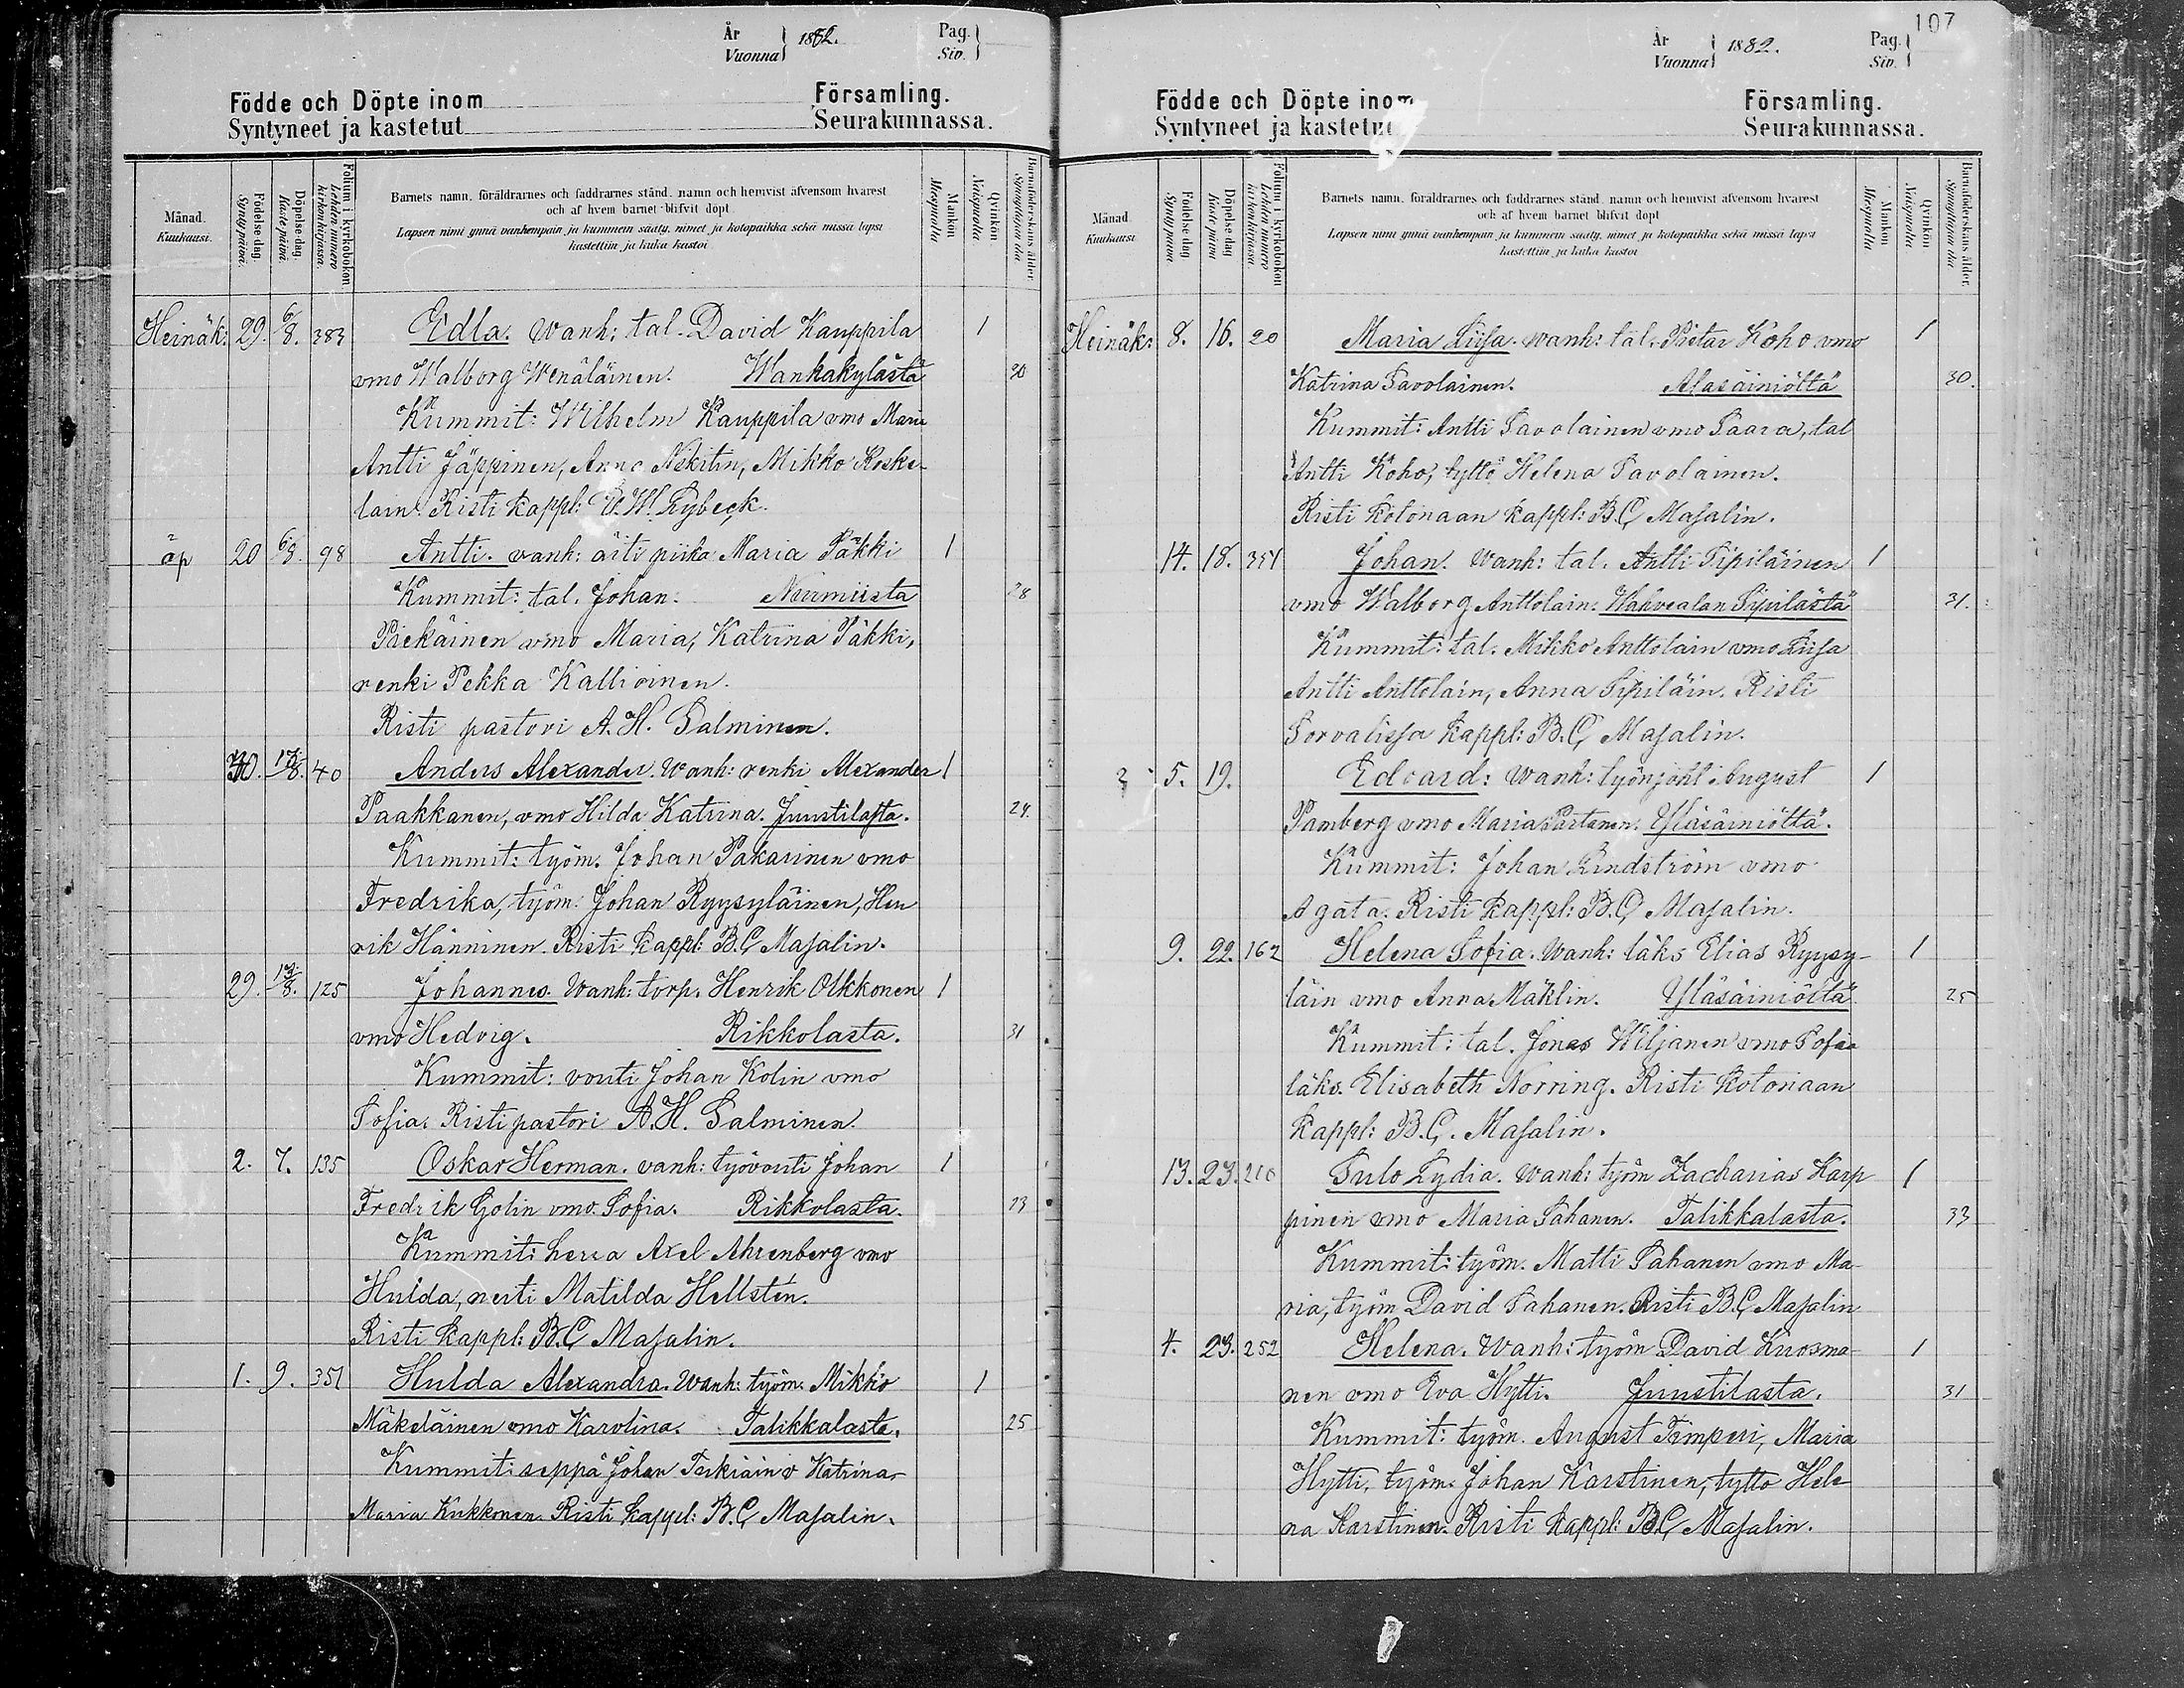 År
Vuonna } 1882.
Pag.
Siv. }
Födde och Döpte inom Församling.
Syntyneet ja kastetut Seurakunnassa.
Månad.
Kuukausi.
Födelse dag.
Synty päivä.
Döpelse dag.
Kaste päivä.
Folium i kyrkobokon
Lehden numero kirkonkirjassa.
Barnets namn, föräldrarnes och faddrarnes stånd, namn och hemvist äfvensom hvarest
och af hvem barnet blifvit döpt
Lapsen nimi ynnä vanhempain ja kummein sääty, nimet ja kotopaikka sekä missä lapsi
kastettiin ja kuka kastoi
Mankön
Miespuolta
Qvinkön
Naispuolta
Barnaföderskans ålder.
Synnyttäjän ikä
Heinäk: 29. 6/8. 383 Edla. wanh: tal. David Kauppila 1
vmo Walborg Wenäläinen. Wanhakylästä 30
Kummit: Wilhelm Kauppila vmo Maria
Antti Jäppinen, Anna Mikko Koske-
lain. Risti kappl: Lybeck.
äp 20 6/8. 98 Antti. vanh: äiti piika Maria Täkki 1
Kummit: tal. Johan. Nurmiista 28
Päekäinen vmo Maria, Katrina Täkki,
renki Pekka Kallioinen.
Risti pastori A. H. Salminen.
30. 40 Anders Alexander. Wanh: renki Alexander 1
Paakkanen, vmo Hilda Katrina. Juustilasta. 24.
Kummit: työm. Johan Pakarinen vmo
Fredrika, työm: Johan Ryysyläinen, Hen
rik Hänninen. Risti kappl: B. C. Masalin.
29. 125 Johannes. Wanh: torp. Henrik Olkkonen 1
vmo Hedvig. Rikkolasta. 31
Kummit: vouti Johan Kolin vmo
Sofia. Risti pastori A. H. Salminen.
2. 7. 135 Oskar Herman. vanh: työvouti Johan 1
Fredrik Golin vmo. Sofia. Rikkolasta.
Kummit: herra Axel Ahrenberg vmo
Hulda, neiti Matilda Hellsten.
Risti kappl: B. C. Masalin.
1. 9. 351 Hulda Alexandra. Wanh: työm. Mikko 1
Mäkeläinen vmo Karolina. Talikkalasta. 25
Kummit: seppä Johan Turkiain v Katrina
Maria Kukkonen. Risti kappl: B. C. Masalin.
107
År
Vuonna } 1882.
Pag.
Siv. }
Födde och Döpte inom Församling.
Syntyneet ja kastetut Seurakunnassa.
Månad.
Kuukausi
Födelse dag
Synty päivä
Döpelse dag
Kaste päivä
Folium i kyrkobokon
Lehden numero kirkonkirjassa.
Barnets namn, föräldrarnes och faddrarnes stånd, namn och hemvist äfvensom hvarest
och af hvem barnet blifvit döpt
Lapsen nimi ynnä vanhempain ja kummein sääty, nimet ja kotopaikka sekä missä lapsi
kastettiin ja kuka kastoi
Mankön
Miespuolta
Qvinkön.
Naispuolta.
Barnaföderskans ålder.
Synnyttäjän ikä
Heinäk: 8. 16. 20 Maria Liisa. wanh: tal. Pietar Koho vmo 1
Katrina Savolainen. Alasäiniöltä 30.
Kummit: Antti Savolainen vmo Saara, tal
Antti Koho, tyttö Helena Savolainen.
Risti kotonaan kappl: B. C. Masalin.
14. 18. 354 Johan. Wanh: tal. Antti Sipiläinen 1
vmo Walborg Anttolain. Wahvealan Sipilästä 31.
Kummit: tal. Mikko Anttolain vmo Liisa
Antti Anttolain, Anna Sipiläin. Risti
Sorvalissa kappl: B. C. Masalin.
5. 19. Edvard: Wanh: työnjoht: August 1
Pamberg vmo Maria Partanen. Yläsäiniöltä.
Kummit: Johan Lindström vmo
Agata. Risti kappl: B. C. Masalin.
9. 22. 162 Helena Sofia. Wanh: läks Elias Ryysy- 1
läin vmo Anna Mäklin. Yläsäiniöltä 25
Kummit: tal. Jonas Wiljanen vmo Sofia
läks. Elisabeth Norring. Risti kotonaan
kappl: B. C. Masalin.
13. 23. 210 Sulo Lydia. Wanh: työm Zacharias Karp 1
pinen vmo Maria Sahanen. Talikkalasta. 33
Kummit: työm. Matti Sahanen vmo Ma-
ria, työm David Sahanen. Risti B. C. Masalin
4. 23. 252 Helena. Wanh: työm David Kuosma- 1
nen vmo Eva Hytti. Juustilasta. 31
Kummit: työm. August Timperi, Maria
Hytti, työm. Johan Karstinen, tyttö Hele-
na Karstinen. Risti kappl: B. C. Masalin.